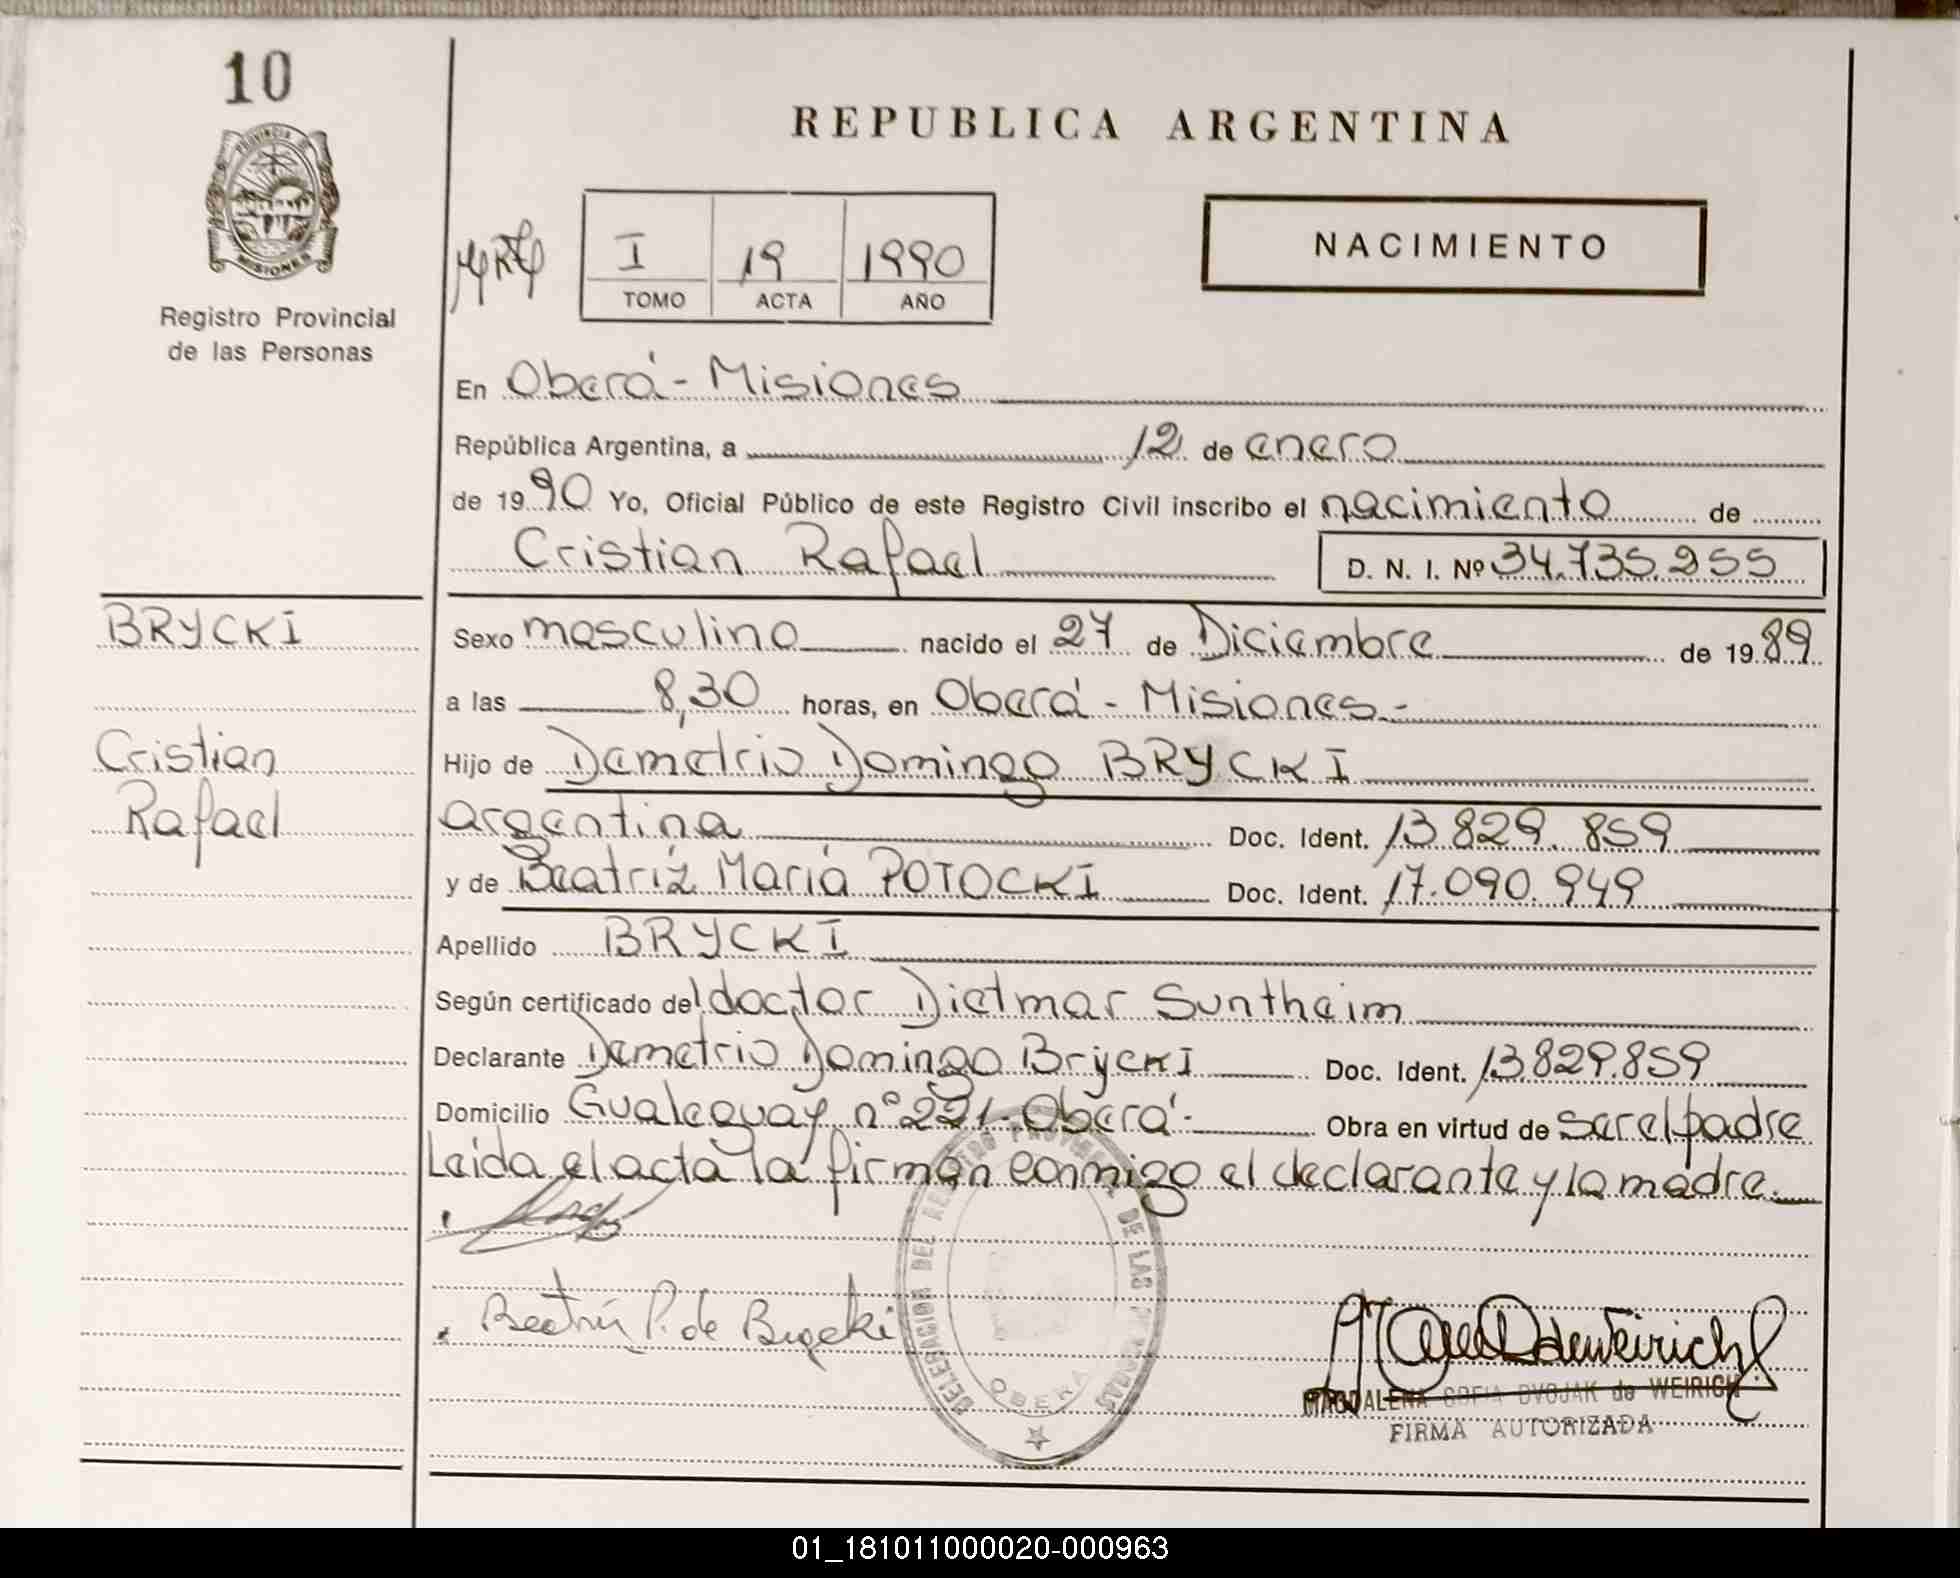 10
PROVINCIA D
MISIONES
Registro Provincial
de las Personas
REPUBLICA ARGENTINA
I 19 1990
TOMO ACTA AÑO
NACIMIENTO
En Oberá - Misiones
República Argentina, a 12 de enero
de 1990 Yo, Oficial Público de este Registro Civil inscribo el nacimiento de
Cristian Rafael D. N. I. Nº 34.735.255
BRYCKI
Cristian
Rafael
Sexo masculino nacido el 27 de Diciembre de 1989
a las 8,30 horas, en Oberá - Misiones.-
Hijo de Demetrio Domingo BRYCKI
argentina Doc. Ident. 13.829.859
y de Beatríz María POTOCKI Doc. Ident. 17.090.949
Apellido BRYCKI
Según certificado del doctor Dietmar Suntheim
Declarante Demetrio Domingo Brycki Doc. Ident. 13.829.859
Domicilio Gualeguay nº 221 - Oberá - Obra en virtud de ser el padre
Leida el acta la firman conmigo el declarante y la madre.
Beatríz P. de Brycki
DELEGACION DEL REGISTRO PROVINCIAL DE LAS PERSONAS
OBERA
MAGDALENA SOFIA DVOJAK de WEIRICH
FIRMA AUTORIZADA
01_181011000020-000963